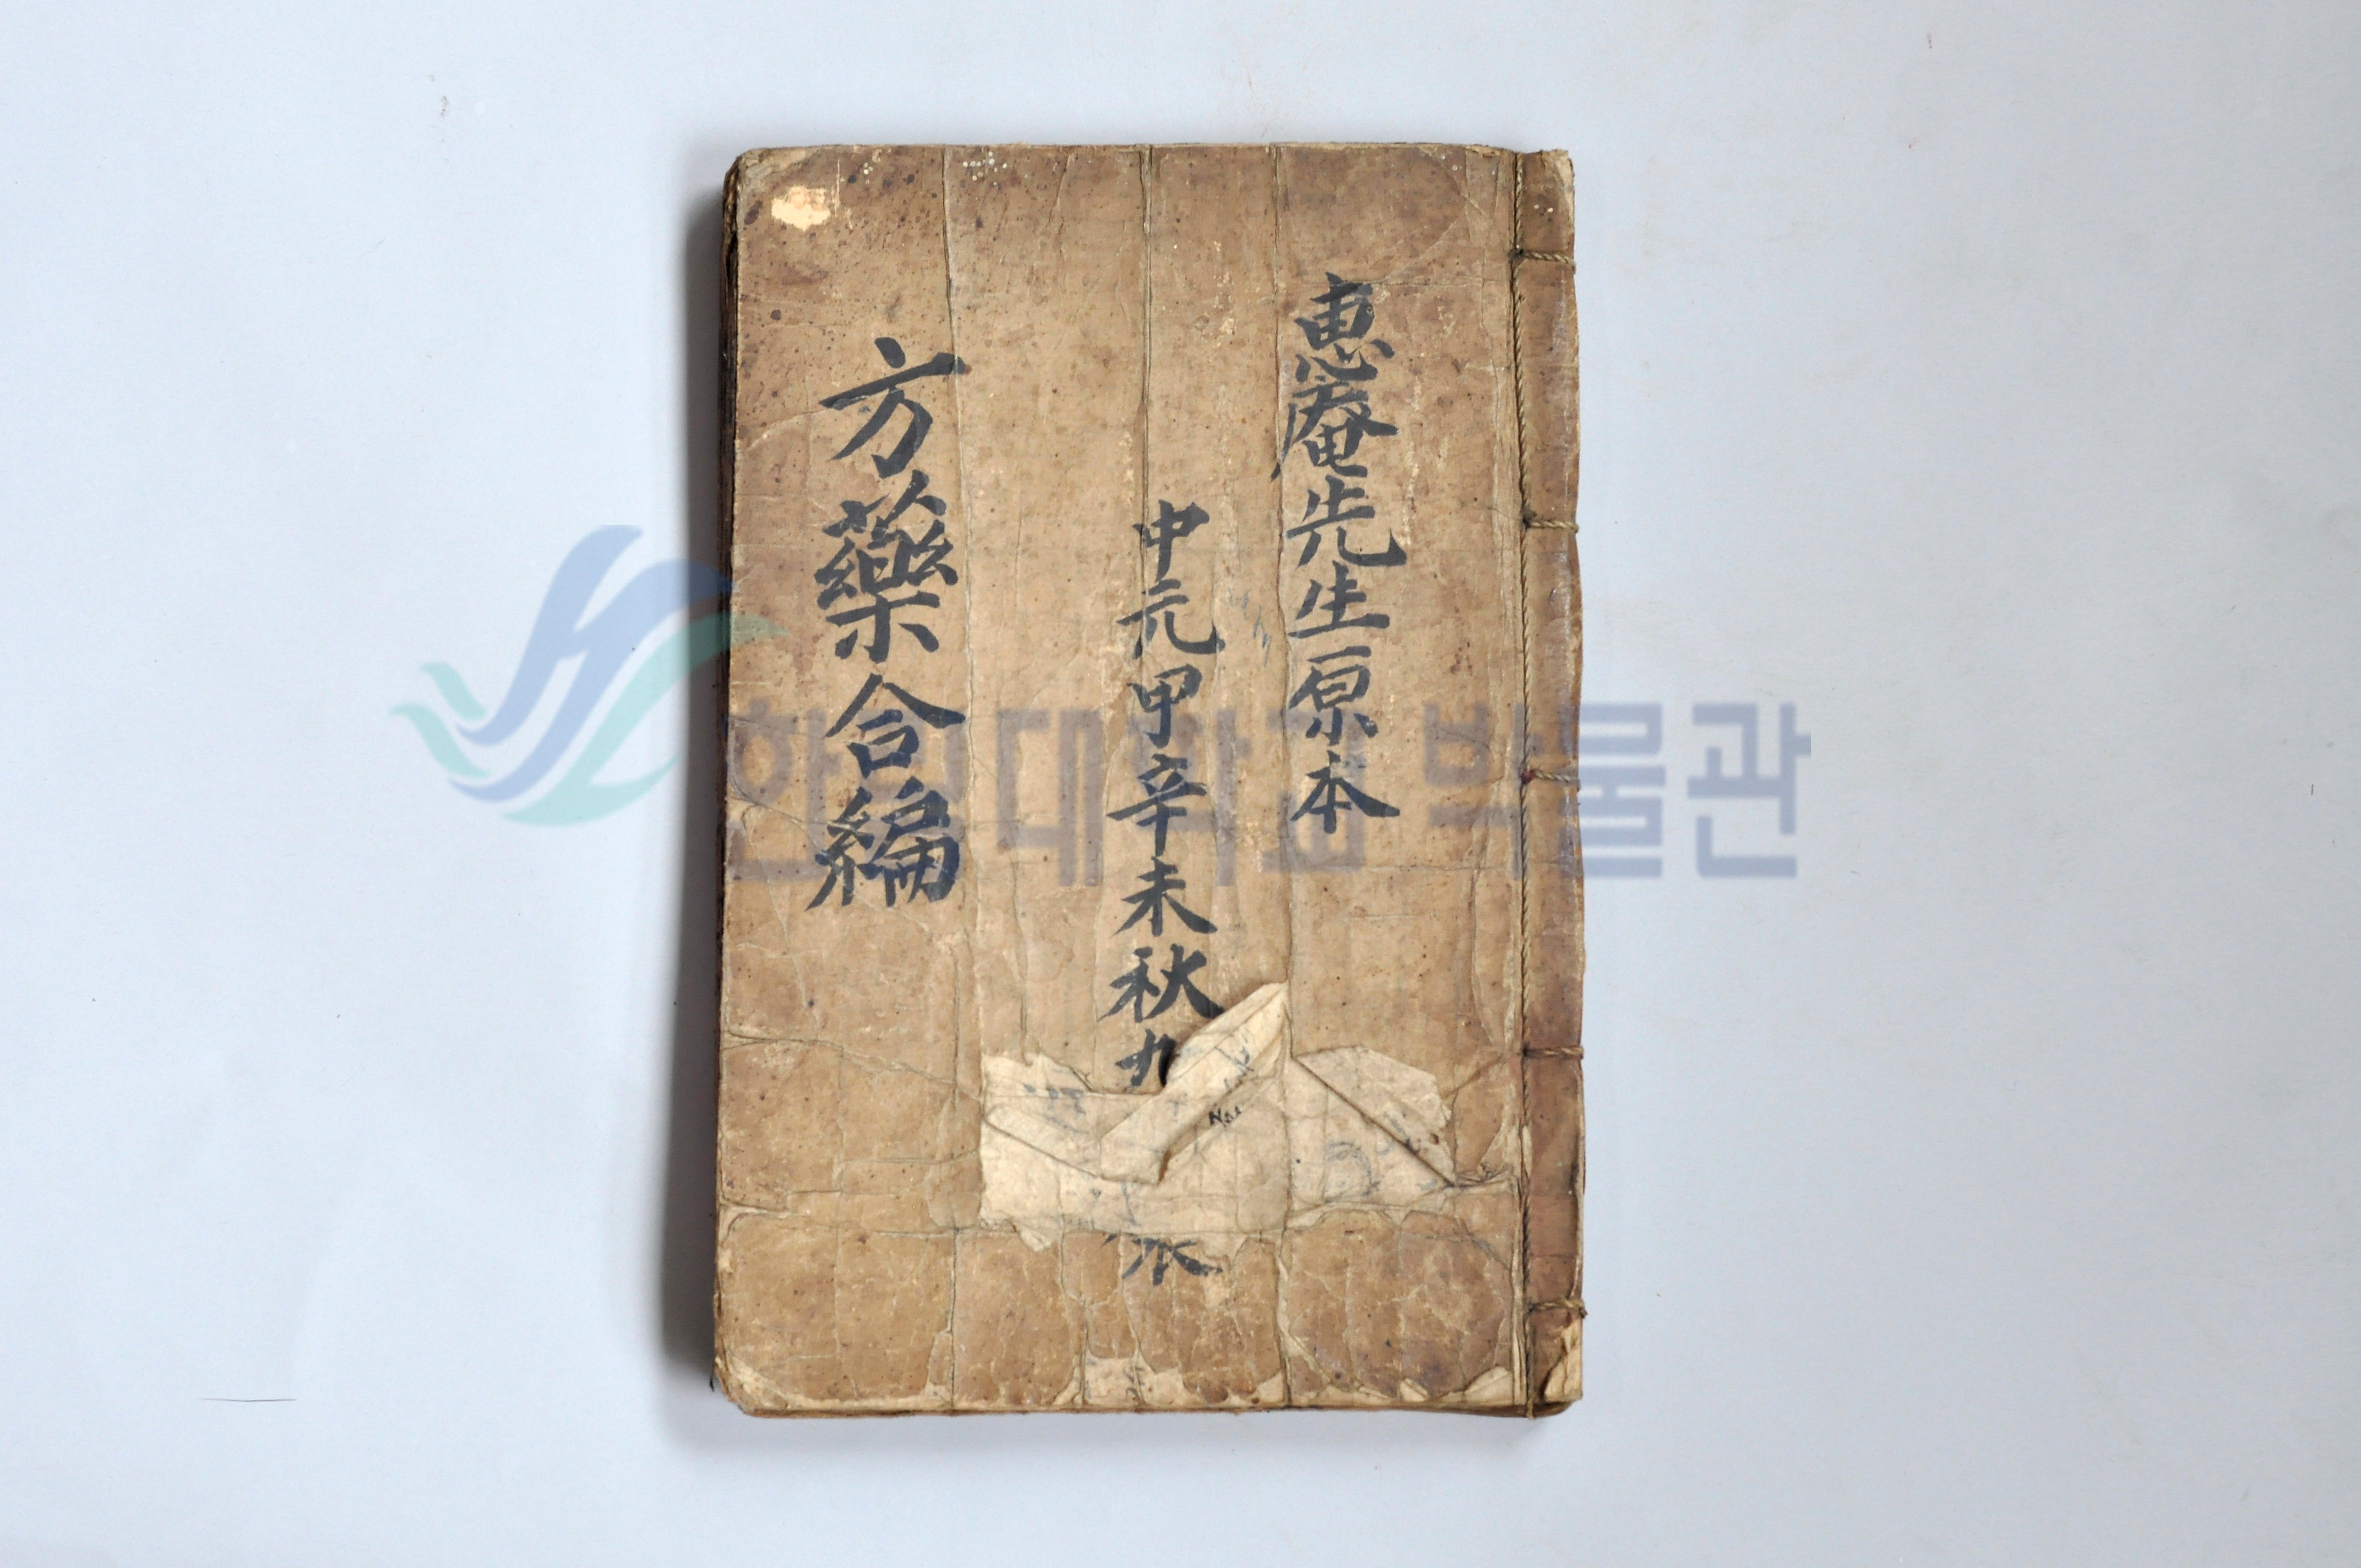 惠庵先生原本
中元甲辛未秋九
方藥合編
한서대학교 박물관